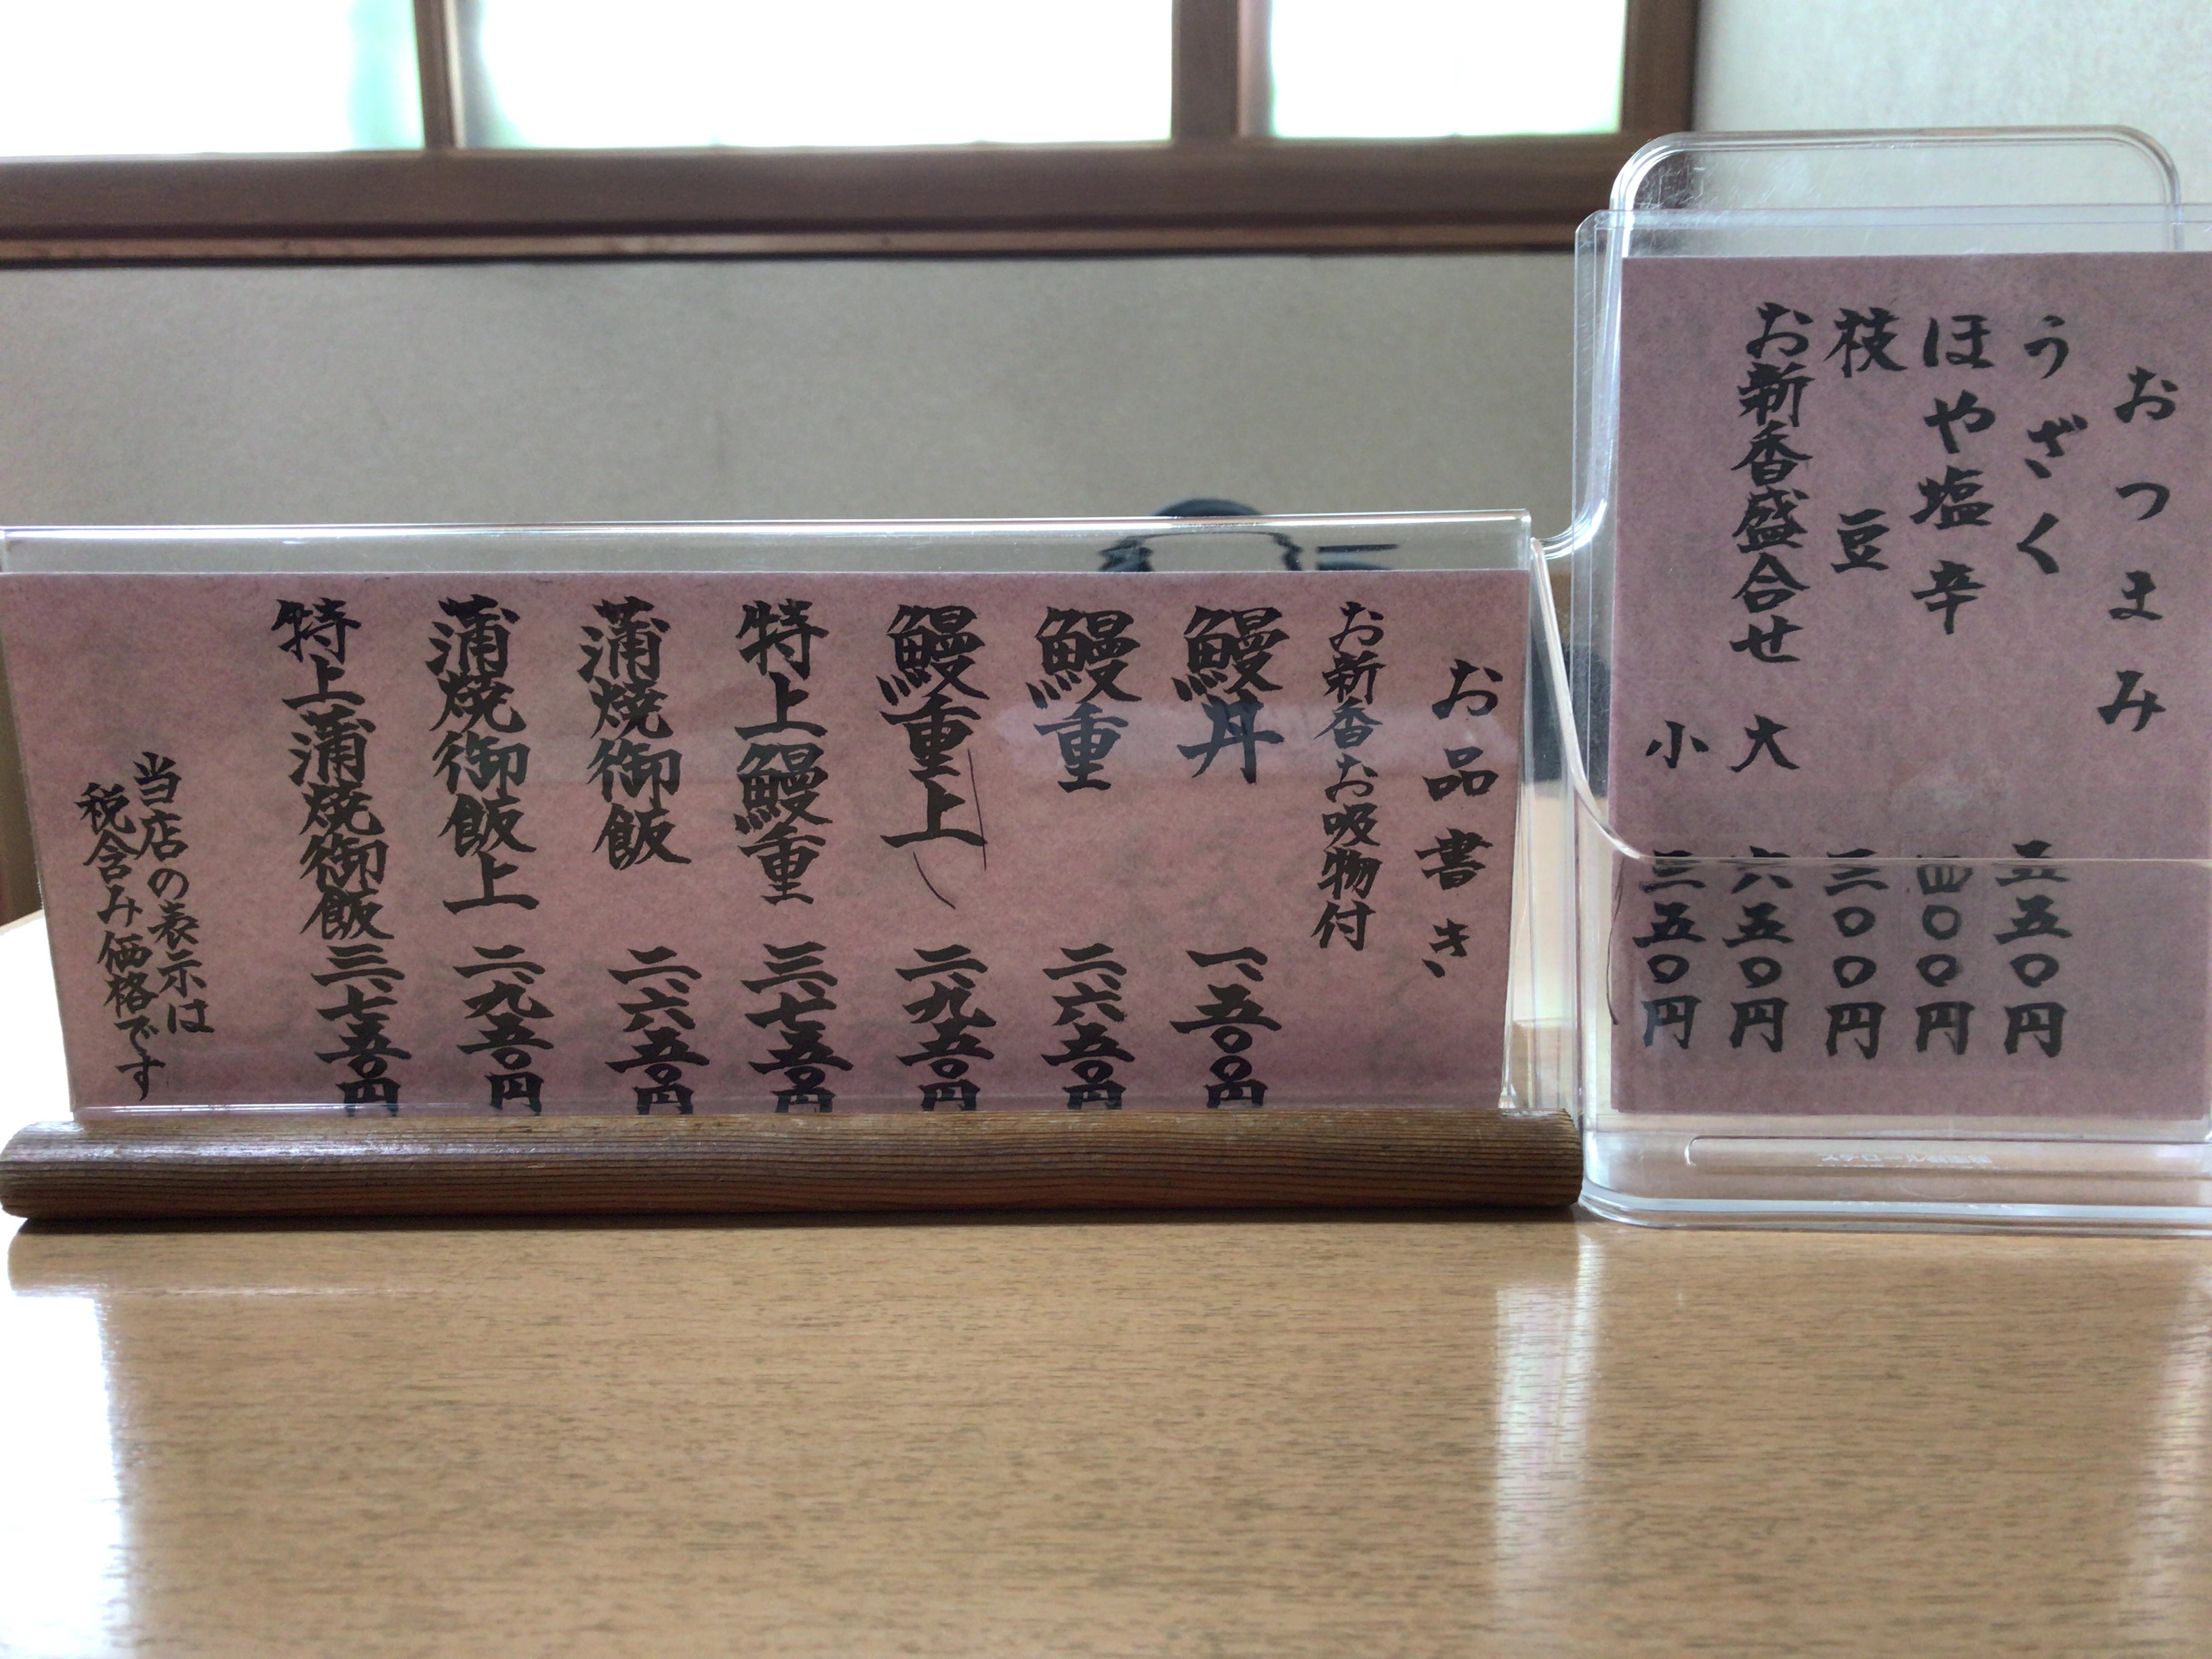 お品書き
お新香お吸物付
鰻丼 一、五〇〇円
鰻重 二、六五〇円
鰻重上 二、九五〇円
特上鰻重 三、七五〇円
蒲焼御飯 二、六五〇円
蒲焼御飯上 二、九五〇円
特上蒲焼御飯 三、七五〇円
当店の表示は
税含み価格です
おつまみ
うざく 五五〇円
ほや塩辛 四〇〇円
枝豆 三〇〇円
お新香盛合せ 大 六五〇円
小 三五〇円